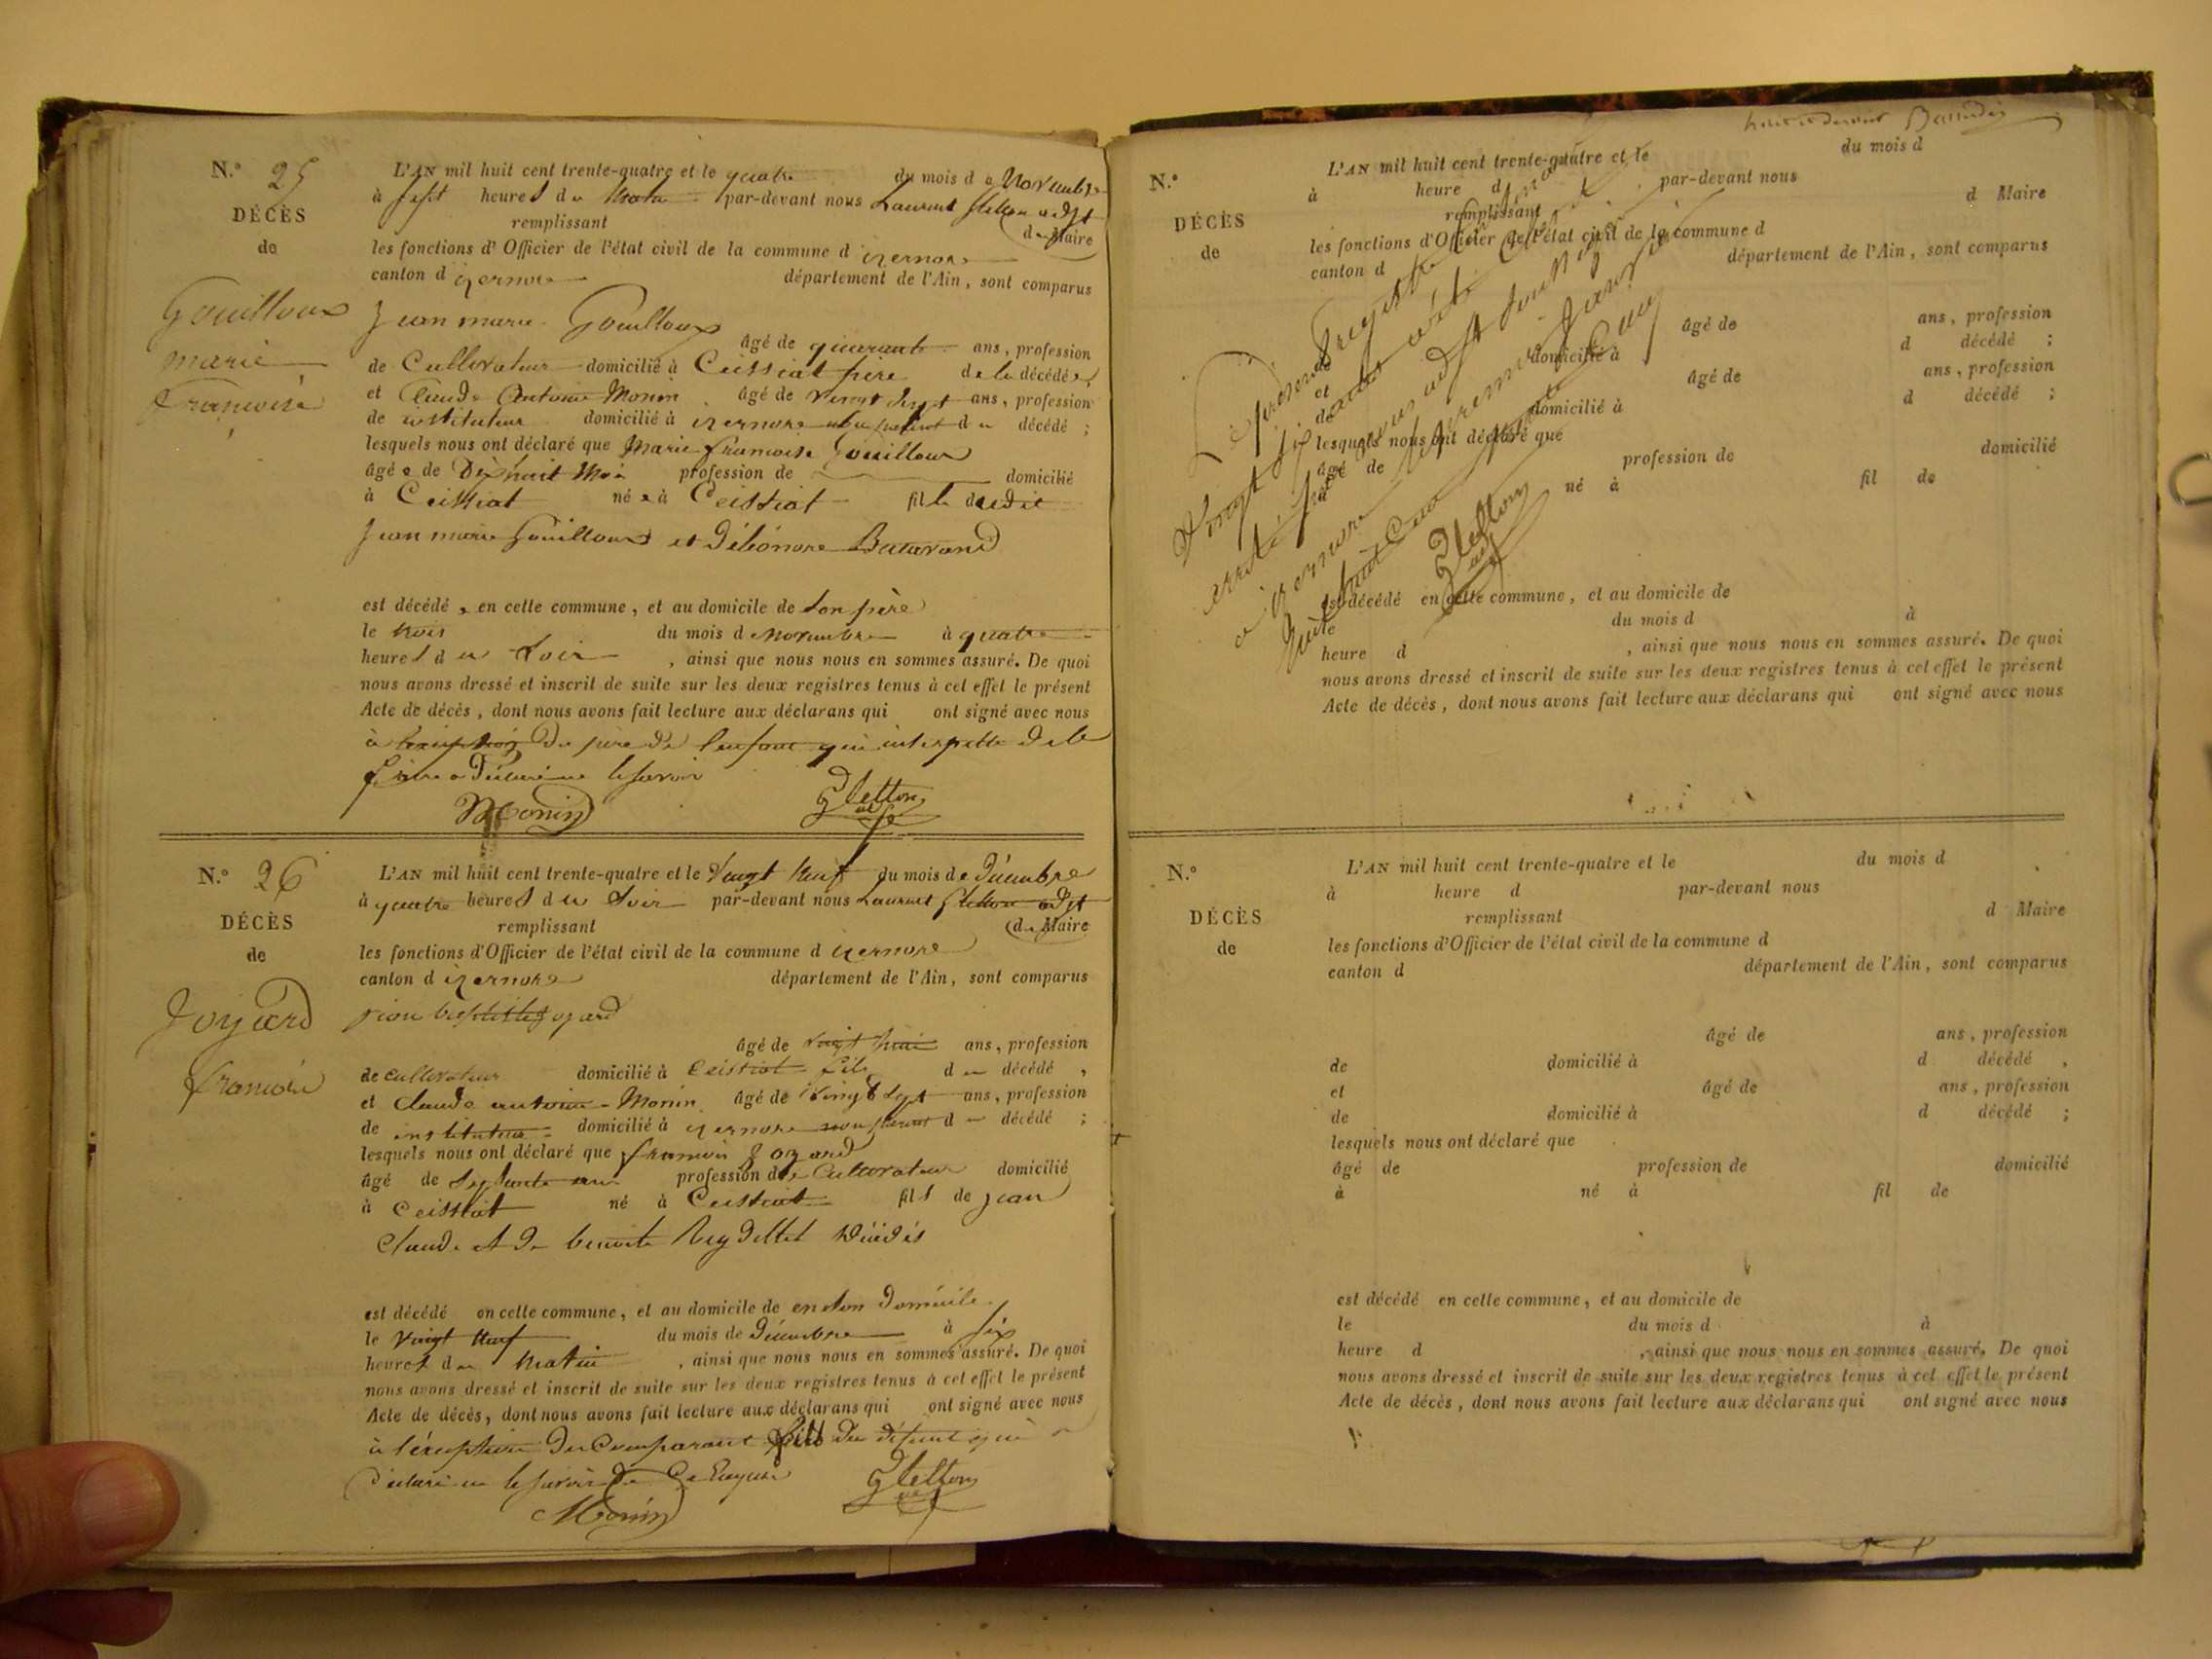 N.° 25
DÉCÈS
de
Gouilloux
marie
Françoise
L'AN mil huit cent trente-quatre et le quatre du mois de Novembre
à sept heures du matin par-devant nous Laurent Gletton adjt
remplissant du Maire
les fonctions d'Officier de l'état civil de la commune d izernore
canton d izernore département de l'Ain, sont comparus
Jean marie Gouilloux
âgé de quarante ans, profession
de Cultivateur domicilié à Ceissiat père de la décédée,
et Claude Antoine Monin âgé de vingt sept ans, profession
de instituteur domicilié à izernore non parent du décédé ;
lesquels nous ont déclaré que Marie françoise Gouilloux
âgée de Dixhuit Mois profession de domicilié
à Ceissiat née à Ceissiat fille dudit
Jean marie Gouilloux et d'éléonore
est décédé, en cette commune, et au domicile de son père
le trois du mois de novembre à quatre
heures du soir , ainsi que nous nous en sommes assuré. De quoi
nous avons dressé et inscrit de suite sur les deux registres tenus à cet effet le présent
Acte de décès, dont nous avons fait lecture aux déclarans qui ont signé avec nous
à du père de l'enfant qui interpellé de le
faire a déclaré ne le savoir
Monin Gletton adjt
N.° 26
DÉCÈS
de
Joyard
françois
L'AN mil huit cent trente-quatre et le Vingt Neuf du mois de Décembre
à quatre heures du soir par-devant nous Laurent Gletton adjt
remplissant du Maire
les fonctions d'Officier de l'état civil de la commune d izernore
canton d izernore département de l'Ain, sont comparus
jean baptiste Joyard
âgé de vingt huit ans, profession
de cultivateur domicilié à Ceissiat fils du décédé ,
et Claude antoine Monin âgé de Vingt sept ans, profession
de instituteur domicilié à izernore non parent du décédé ;
lesquels nous ont déclaré que françois Joyard
âgé de septante ans profession de Cultivateur domicilié
à Ceissiat né à Ceissiat fils de jean
Claude et de benoite Reydellet décédés
est décédé en cette commune, et au domicile de en son Domicile
le vingt Neuf du mois de décembre à six
heures du Matin , ainsi que nous nous en sommes assuré. De quoi
nous avons dressé et inscrit de suite sur les deux registres tenus à cet effet le présent
Acte de décès, dont nous avons fait lecture aux déclarans qui ont signé avec nous
à l'éxception du Comparant fils du défunt qui a
déclaré ne le savoir de ce Enquis
Monin Gletton adjt
N.°
DÉCÈS
de
L'AN mil huit cent trente-quatre et le du mois d
à heure d par-devant nous
remplissant d Maire
les fonctions d'Officier de l'état civil de la commune d
canton d département de l'Ain, sont comparus
âgé de ans, profession
de domicilié à d décédé ;
et âgé de ans, profession
de domicilié à d décédé ;
lesquels nous ont déclaré que
âgé de profession de domicilié
à né à fil de
Le présent registre
Vingt six actes
arrêté par nous adjt soussigné
à izernore le premier janvier
huit cent trente cinq
Gletton adjt
est décédé en cette commune, et au domicile de
le du mois d à
heure d , ainsi que nous nous en sommes assuré. De quoi
nous avons dressé et inscrit de suite sur les deux registres tenus à cet effet le présent
Acte de décès, dont nous avons fait lecture aux déclarans qui ont signé avec nous
N.°
DÉCÈS
de
L'AN mil huit cent trente-quatre et le du mois d
à heure d par-devant nous
remplissant d Maire
les fonctions d'Officier de l'état civil de la commune d
canton d département de l'Ain, sont comparus
âgé de ans, profession
de domicilié à d décédé ,
et âgé de ans, profession
de domicilié à d décédé ;
lesquels nous ont déclaré que
âgé de profession de domicilié
à né à fil de
est décédé en cette commune, et au domicile de
le du mois d à
heure d , ainsi que nous nous en sommes assuré. De quoi
nous avons dressé et inscrit de suite sur les deux registres tenus à cet effet le présent
Acte de décès, dont nous avons fait lecture aux déclarans qui ont signé avec nous